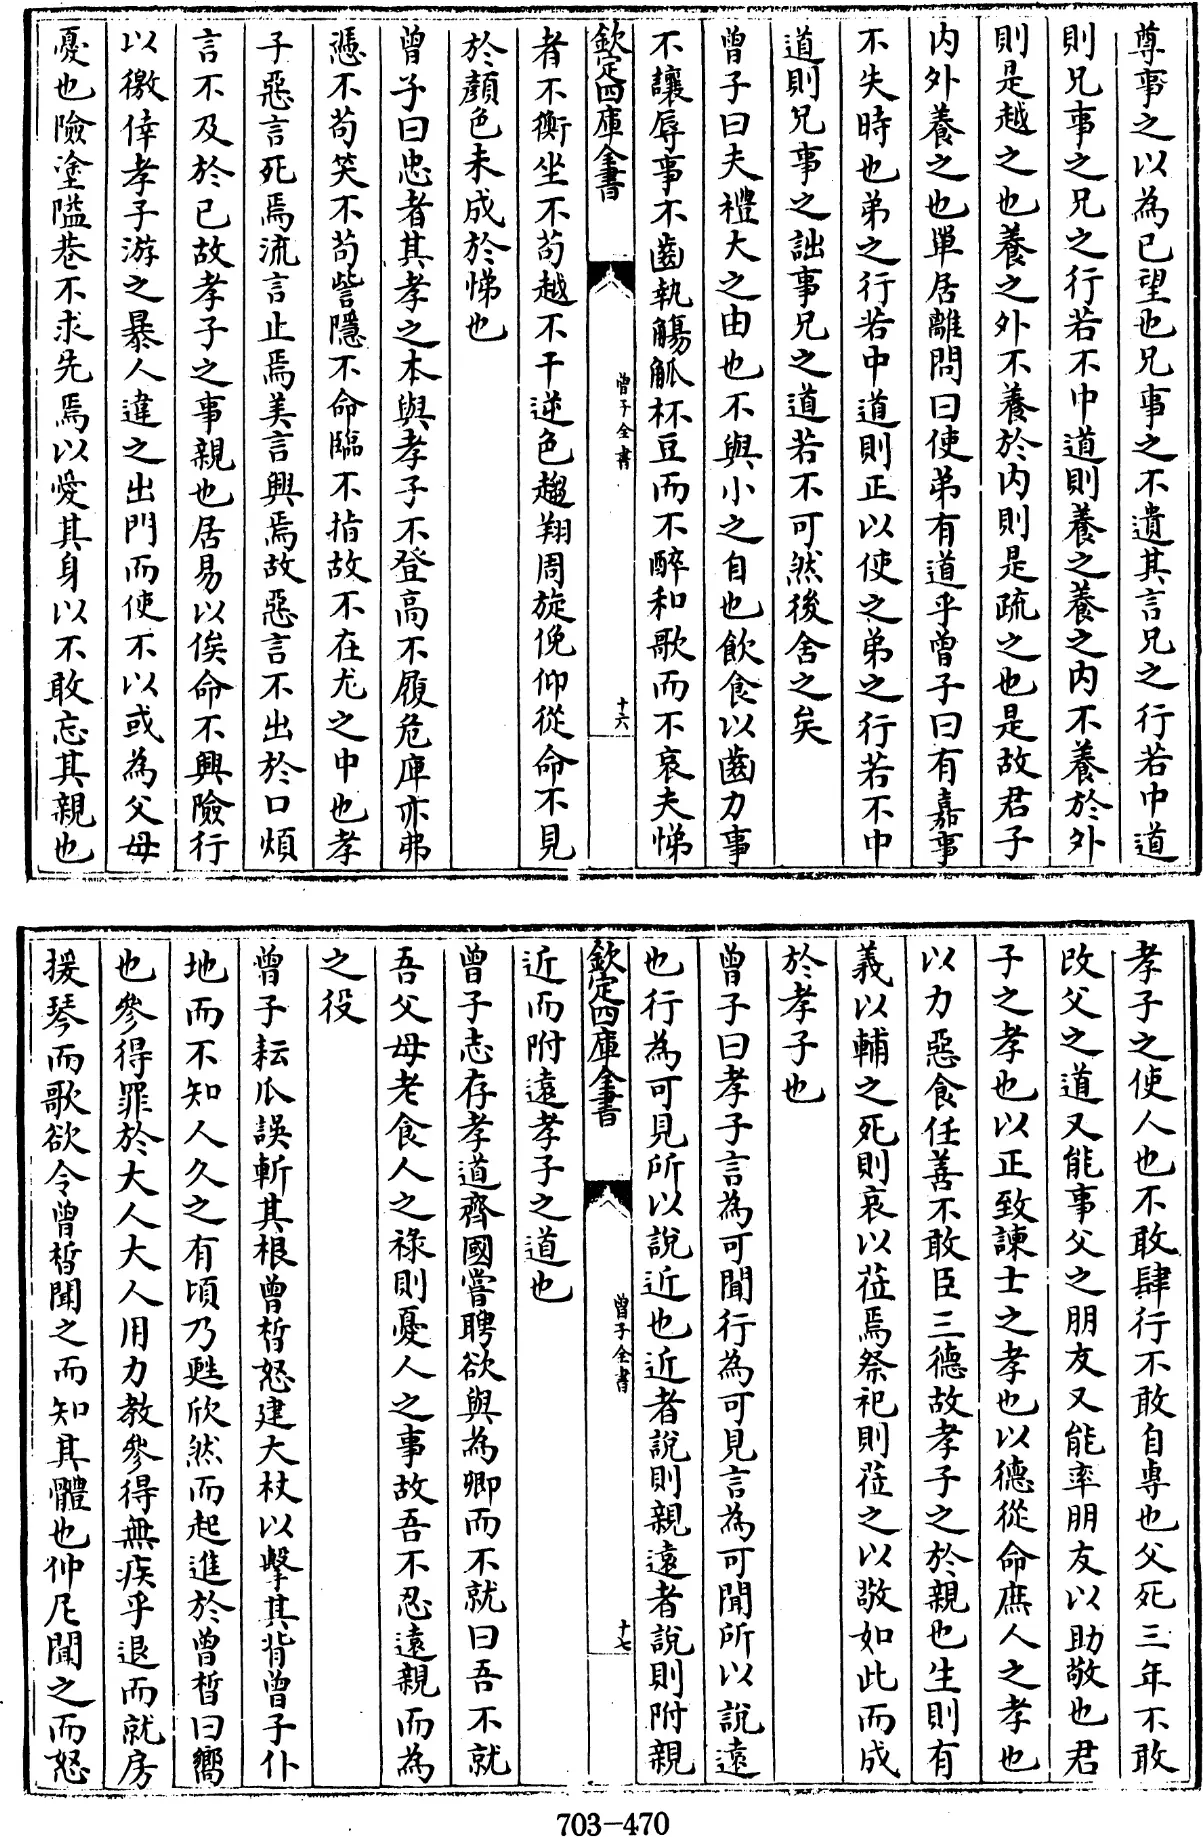 尊事之以為己望也兄事之不遺其言兄之行若中道
則兄事之兄之行若不中道則養之養之内不養於外
則是越之也養之外不養於内則是疏之也是故君子
内外養之也單居離問曰使弟有道乎曾子曰有嘉事
不失時也弟之行若中道則正以使之弟之行若不中
道則兄事之詘事兄之道若不可然後舍之矣
曾子曰夫禮大之由也不與小之自也飲食以齒力事
不讓辱事不齒執觴觚杯豆而不醉和歌而不哀夫悌
欽定四庫全書
曾子全書
十六
者不衡坐不苟越不干逆色趨翔周旋俛仰從命不見
於顔色未成於悌也
曾子曰忠者其孝之本與孝子不登高不履危庳亦弗
憑不苟笑不苟訾隱不命臨不指故不在尤之中也孝
子惡言死焉流言止焉美言興焉故惡言不出於口煩
言不及於已故孝子之事親也居易以俟命不興險行
以徼倖孝子游之暴人違之出門而使不以或為父母
憂也險塗隘巷不求先焉以愛其身以不敢忘其親也
孝子之使人也不敢肆行不敢自専也父死三年不敢
改父之道又能事父之朋友又能率朋友以助敬也君
子之孝也以正致諫士之孝也以德從命庶人之孝也
以力惡食任善不敢臣三德故孝子之於親也生則有
義以輔之死則哀以莅焉祭祀則莅之以敬如此而成
於孝子也
曾子曰孝子言為可聞行為可見言為可聞所以説遠
也行為可見所以說近也近者說則親遠者說則附親
欽定四庫全書
曾子全書
十七
近而附遠孝子之道也
曾子志存孝道齊國嘗聘欲與為卿而不就曰吾不就
吾父母老食人之祿則憂人之事故吾不忍遠親而為
之役
曾子耘瓜誤斬其根曾晳怒建大杖以擊其背曾子仆
地而不知人久之有頃乃甦欣然而起進於曾晳曰嚮
也參得罪於大人大人用力教參得無疾乎退而就房
援琴而歌欲令曾晳聞之而知其體也仲尼聞之而怒
703-470